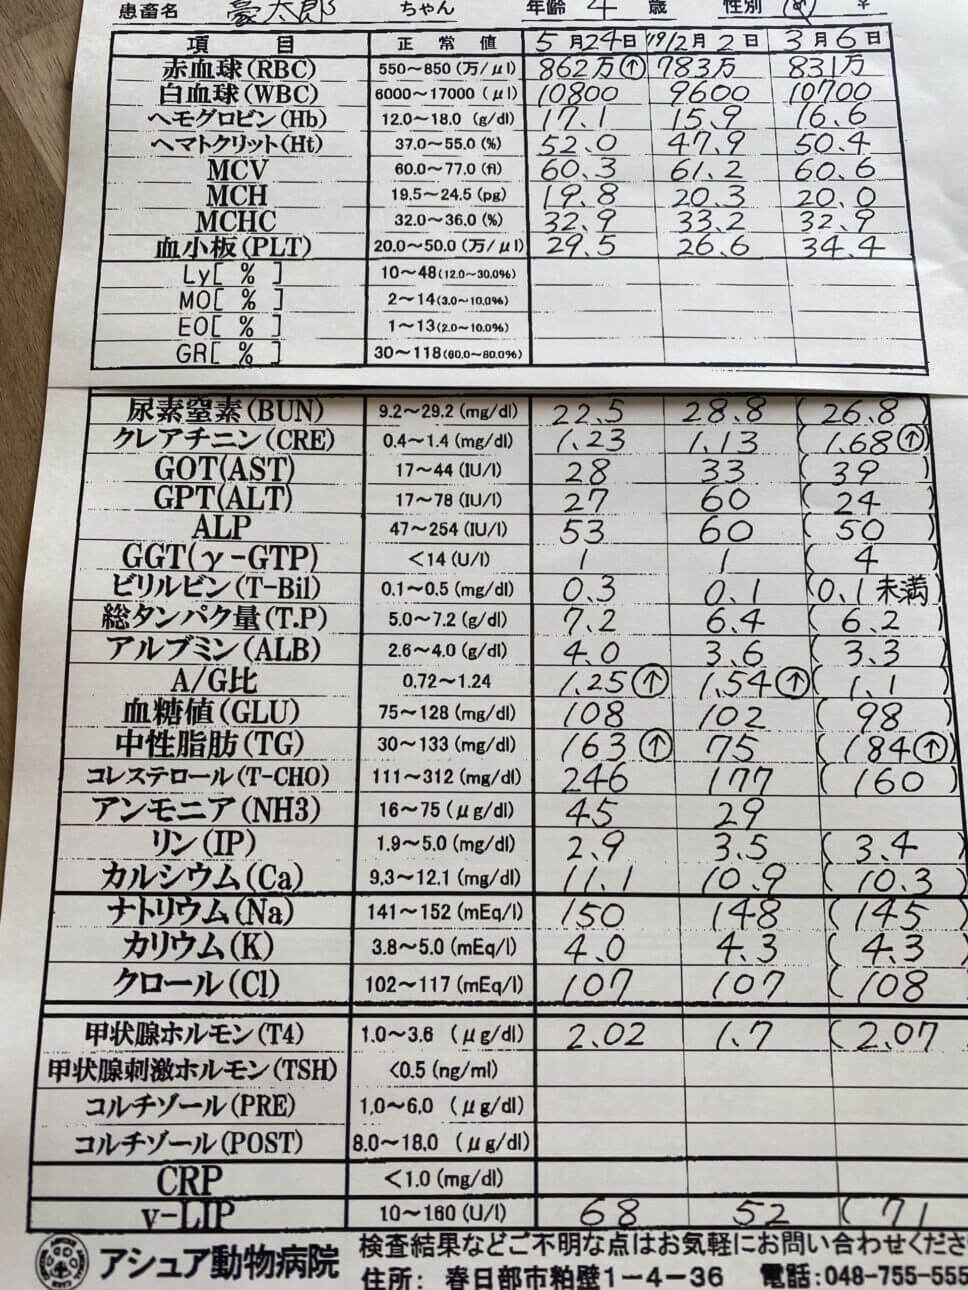 患畜名 豪太郎 ちゃん 年齢 4 歳 性別
項 目 正 常 値 5月24日 '19/2月2日 3月6日
赤血球(RBC) 550〜850(万/μl) 862万↑ 783万 831万
白血球(WBC) 6000〜17000(μl) 10800 9600 10700
ヘモグロビン(Hb) 12.0〜18.0 (g/dl) 17.1 15.9 16.6
ヘマトクリット(Ht) 37.0〜55.0 (%) 52.0 47.9 50.4
MCV 60.0〜77.0 (fl) 60.3 61.2 60.6
MCH 19.5〜24.5 (pg) 19.8 20.3 20.0
MCHC 32.0〜36.0 (%) 32.9 33.2 32.9
血小板(PLT) 20.0〜50.0(万/μl) 29.5 26.6 34.4
Ly[ % ] 10〜48(12.0〜30.0%)
MO[ % ] 2〜14(3.0〜10.0%)
EO[ % ] 1〜13(2.0〜10.0%)
GR[ % ] 30〜118(60.0〜80.0%)
尿素窒素(BUN) 9.2〜29.2(mg/dl) 22.5 28.8 (26.8)
クレアチニン(CRE) 0.4〜1.4(mg/dl) 1.23 1.13 (1.68↑)
GOT(AST) 17〜44(IU/l) 28 33 (39)
GPT(ALT) 17〜78(IU/l) 27 60 (24)
ALP 47〜254(IU/l) 53 60 (50)
GGT(γ-GTP) <14(U/l) 1 1 (4)
ビリルビン(T-Bil) 0.1〜0.5(mg/dl) 0.3 0.1 (0.1未満)
総タンパク量(T.P) 5.0〜7.2(g/dl) 7.2 6.4 (6.2)
アルブミン(ALB) 2.6〜4.0(g/dl) 4.0 3.6 (3.3)
A/G比 0.72〜1.24 1.25↑ 1.54↑ (1.1)
血糖値(GLU) 75〜128(mg/dl) 108 102 (98)
中性脂肪(TG) 30〜133(mg/dl) 163↑ 75 (184↑)
コレステロール(T-CHO) 111〜312(mg/dl) 246 177 (160)
アンモニア(NH3) 16〜75(μg/dl) 45 29
リン(IP) 1.9〜5.0(mg/dl) 2.9 3.5 (3.4)
カルシウム(Ca) 9.3〜12.1(mg/dl) 11.1 10.9 (10.3)
ナトリウム(Na) 141〜152(mEq/l) 150 148 (145)
カリウム(K) 3.8〜5.0(mEq/l) 4.0 4.3 (4.3)
クロール(Cl) 102〜117(mEq/l) 107 107 (108
甲状腺ホルモン(T4) 1.0〜3.6 (μg/dl) 2.02 1.7 (2.07
甲状腺刺激ホルモン(TSH) <0.5(ng/ml)
コルチゾール(PRE) 1.0〜6.0 (μg/dl)
コルチゾール(POST) 8.0〜18.0 (μg/dl)
CRP <1.0(mg/dl)
v-LIP 10〜160(U/l) 68 52 (71
アシュア動物病院
検査結果などご不明な点はお気軽にお問い合わせくださ
住所: 春日部市粕壁1-4-36 電話:048-755-555